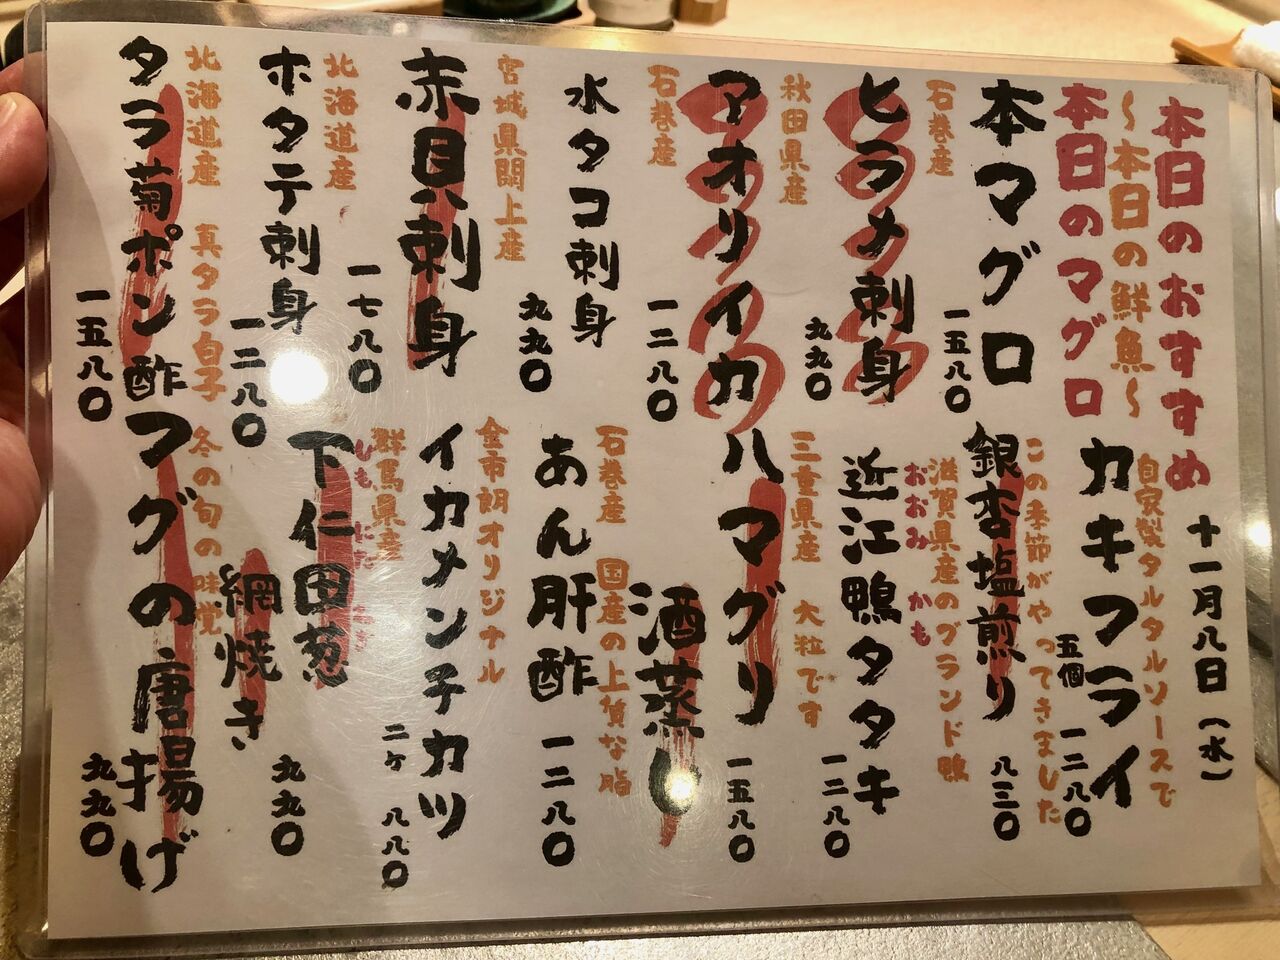 本日のおすすめ
十一月八日(水)
〜本日の鮮魚〜
本日のマグロ
本マグロ
一五八〇
石巻産
ヒラメ刺身
九九〇
秋田県産
アオリイカ
一二八〇
石巻産
水タコ刺身
九九〇
宮城県閖上産
赤貝刺身
一七八〇
北海道産
ホタテ刺身
一二八〇
北海道産 真タラ白子
タラ菊ポン酢
一五八〇
自家製タルタルソースで
カキフライ
五個 一二八〇
この季節がやってきました
銀杏塩煎り
八三〇
滋賀県産のブランド鴨
おおみ かも
近江鴨タタキ
一二八〇
三重県産 大粒です
ハマグリ
酒蒸し
一五八〇
石巻産 国産の上質な脂
あん肝酢
一二八〇
金市朗オリジナル
イカメンチカツ
二ヶ 八八〇
群馬県産
しもにたねぎ
下仁田葱
網焼き
九九〇
冬の旬の味覚
フグの唐揚げ
九九〇